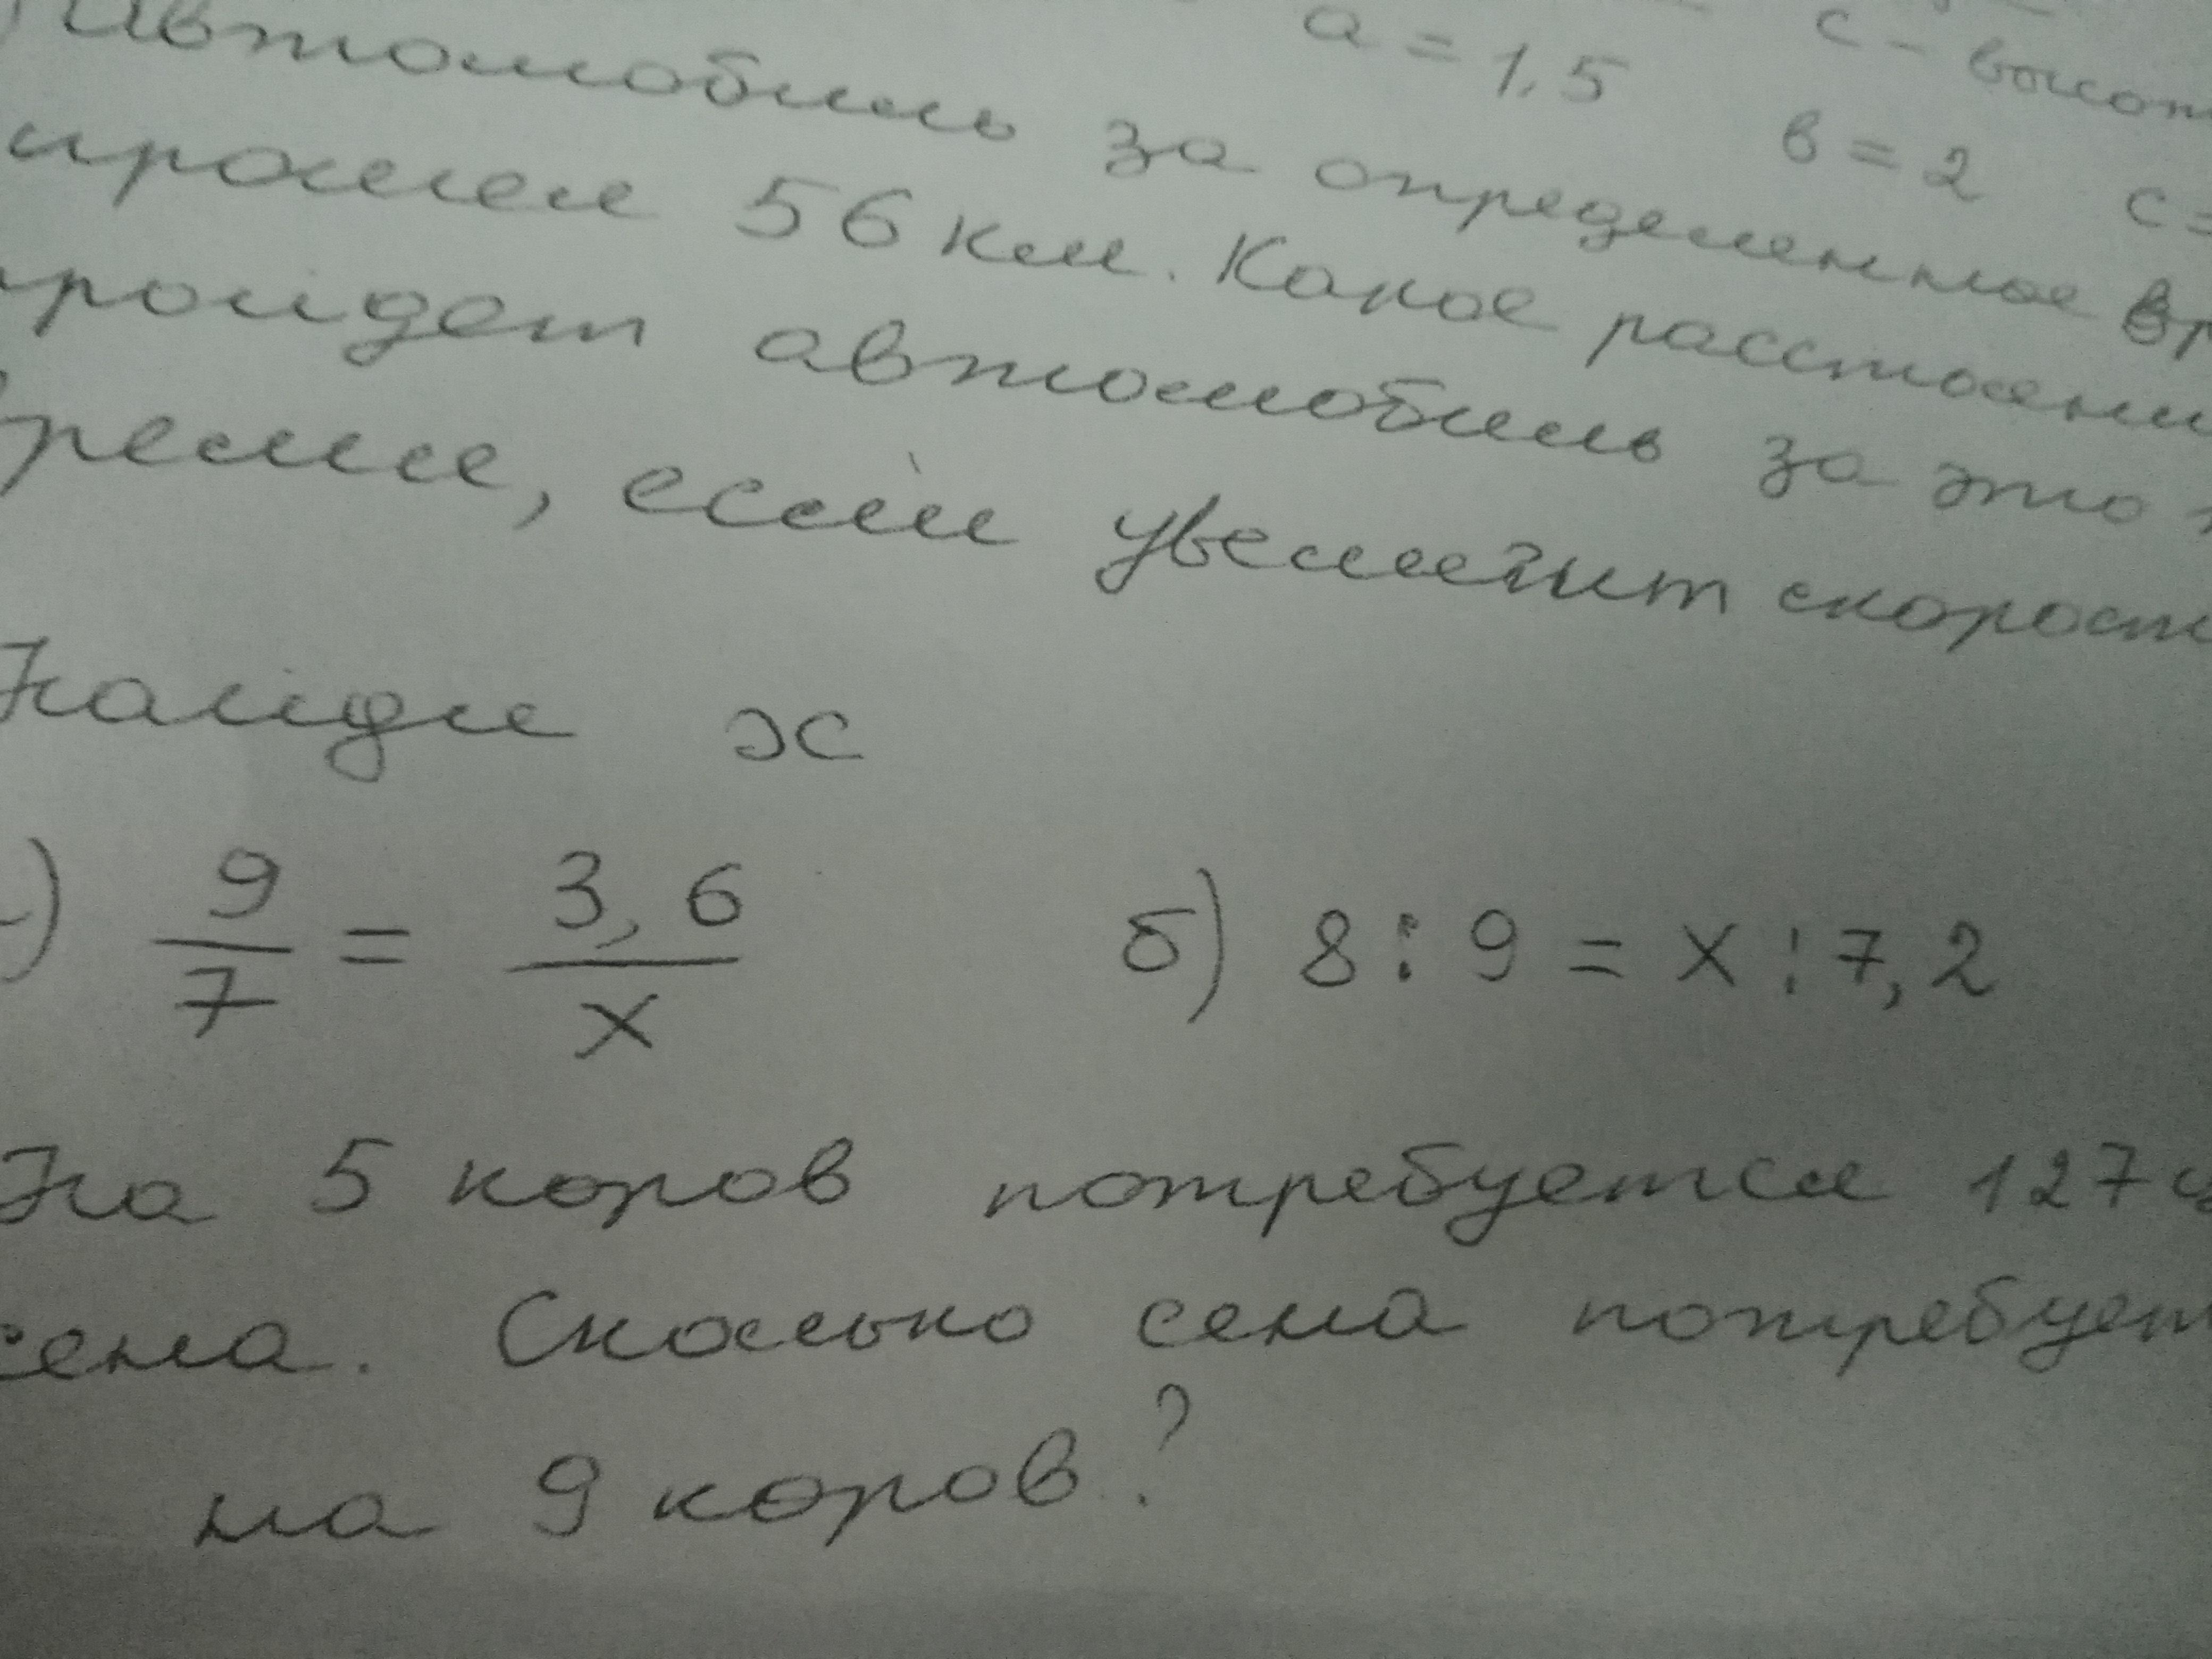 a = 1,5 с - высот
в = 2 с =
Автомобиль за определенное вр
прошел 56 км. Какое расстояни
пройдет автомобиль за это
время, если увеличит скорост
Найди х
) 9/7 = 3,6/х б) 8 : 9 = х : 7,2
На 5 коров потребуется 127 ц
сена. Сколько сена потребует
на 9 коров?